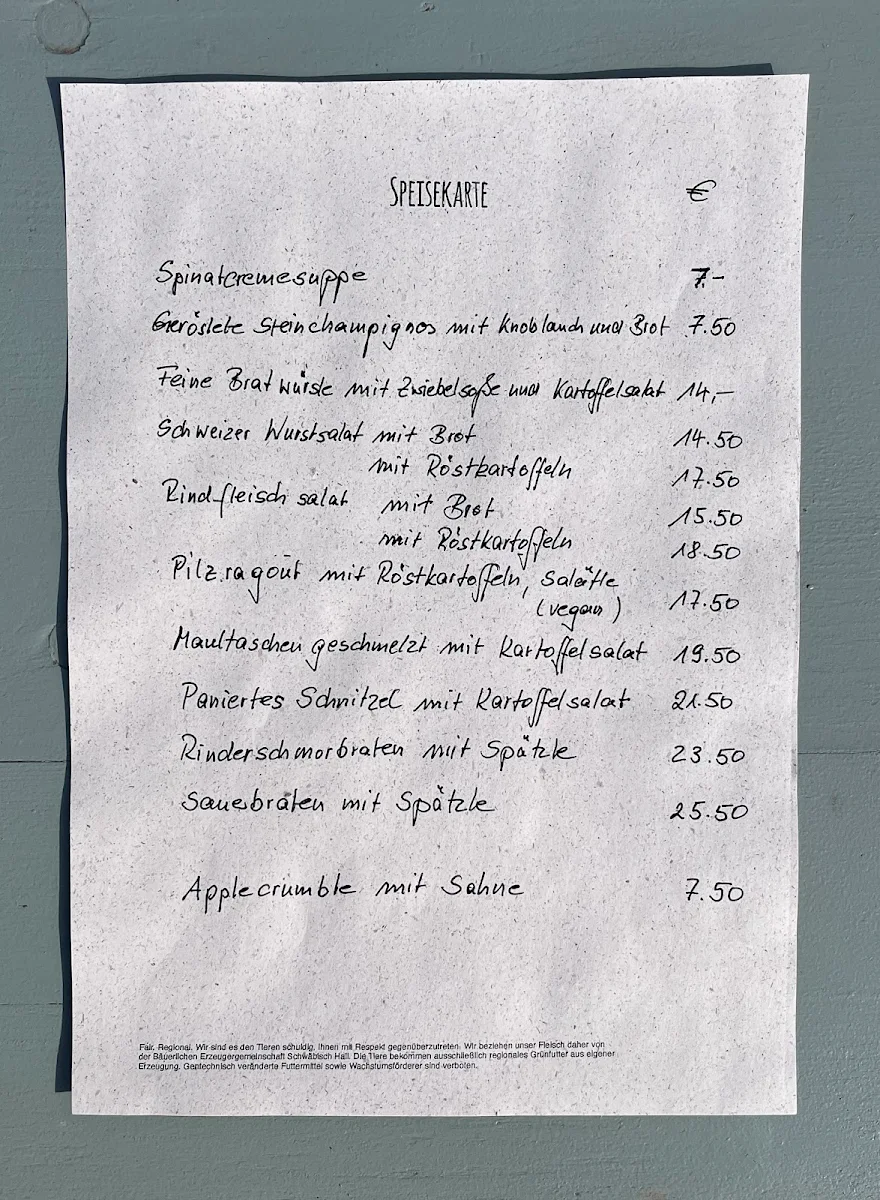 SPEISEKARTE €
Spinatcremesuppe 7.-
Geröstete Steinchampignos mit Knoblauch und Brot 7.50
Feine Bratwürste mit Zwiebelsoße und Kartoffelsalat 14,-
Schweizer Wurstsalat mit Brot 14.50
mit Röstkartoffeln 17.50
Rindfleischsalat mit Brot 15.50
mit Röstkartoffeln 18.50
Pilzragout mit Röstkartoffeln, Salätle
(vegan) 17.50
Maultaschen geschmelzt mit Kartoffelsalat 19.50
Paniertes Schnitzel mit Kartoffelsalat 21.50
Rinderschmorbraten mit Spätzle 23.50
Sauerbraten mit Spätzle 25.50
Applecrumble mit Sahne 7.50
Fair. Regional. Wir sind es den Tieren schuldig, ihnen mit Respekt gegenüberzutreten. Wir beziehen unser Fleisch daher von
der Bäuerlichen Erzeugergemeinschaft Schwäbisch Hall. Die Tiere bekommen ausschließlich regionales Grünfutter aus eigener
Erzeugung. Gentechnisch veränderte Futtermittel sowie Wachstumsförderer sind verboten.